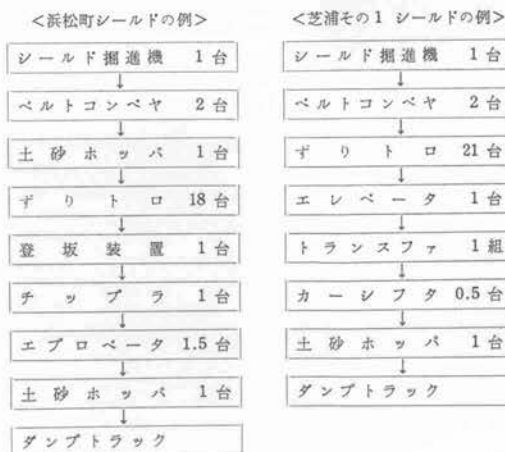 <浜松町シールドの例>
シールド掘進機 1台
ベルトコンベヤ 2台
土砂ホッパ 1台
ずりトロ 18台
登坂装置 1台
チップラ 1台
エプロベータ 1.5台
土砂ホッパ 1台
ダンプトラック
<芝浦その1 シールドの例>
シールド掘進機 1台
ベルトコンベヤ 2台
ずりトロ 21台
エレベータ 1台
トランスファ 1組
カーシフタ 0.5台
土砂ホッパ 1台
ダンプトラック